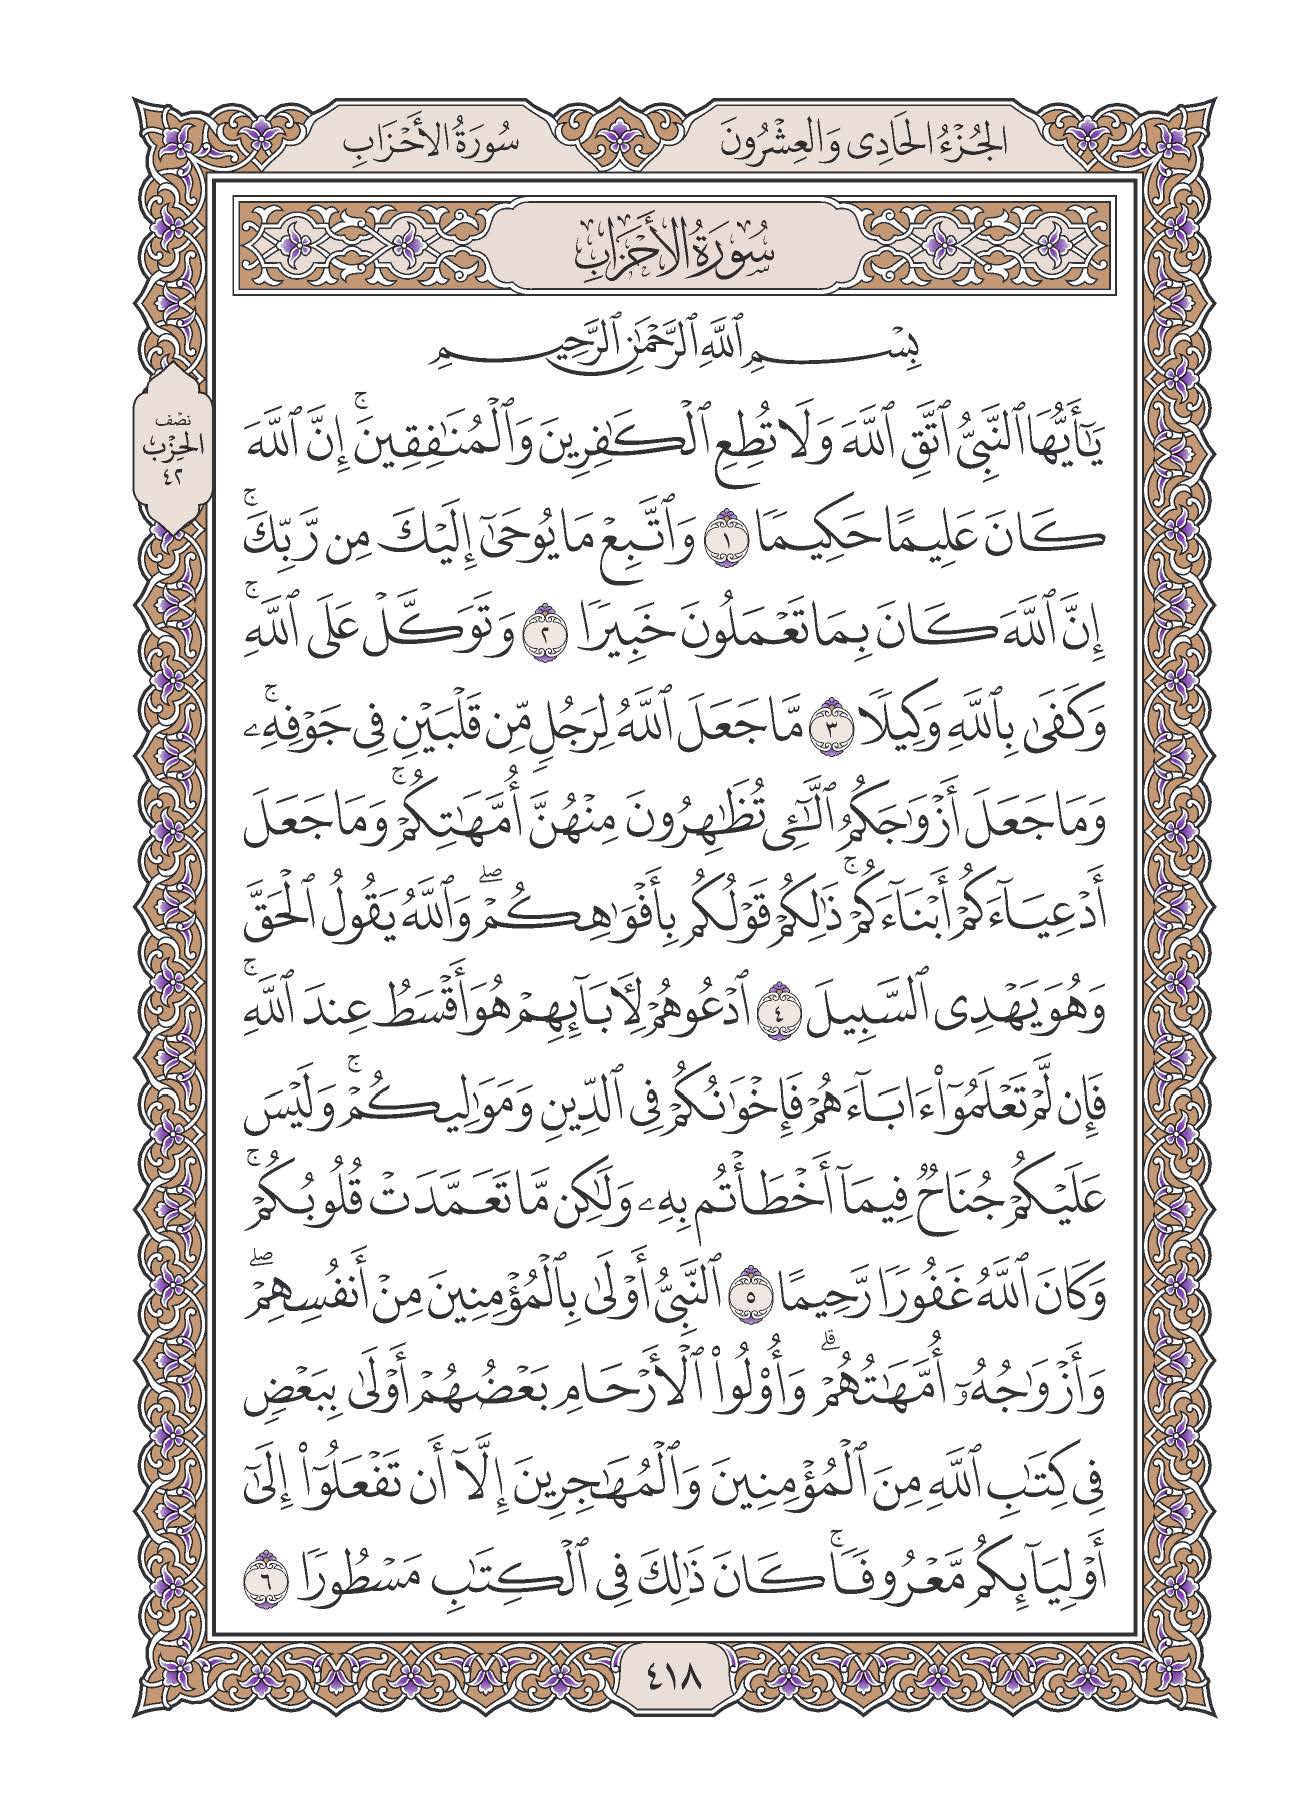 الجُزْءُ الحَادِى وَالعِشْرُونَ
سُورَةُ الأَحْزَابِ
سُورَةُ الأَحْزَابِ
بِسْمِ ٱللَّهِ ٱلرَّحْمَٰنِ ٱلرَّحِيمِ
يَٰٓأَيُّهَا ٱلنَّبِىُّ ٱتَّقِ ٱللَّهَ وَلَا تُطِعِ ٱلْكَٰفِرِينَ وَٱلْمُنَٰفِقِينَ ۚ إِنَّ ٱللَّهَ
كَانَ عَلِيمًا حَكِيمًا ١ وَٱتَّبِعْ مَا يُوحَىٰٓ إِلَيْكَ مِن رَّبِّكَ ۚ
إِنَّ ٱللَّهَ كَانَ بِمَا تَعْمَلُونَ خَبِيرًا ٢ وَتَوَكَّلْ عَلَى ٱللَّهِ ۚ
وَكَفَىٰ بِٱللَّهِ وَكِيلًا ٣ مَّا جَعَلَ ٱللَّهُ لِرَجُلٍ مِّن قَلْبَيْنِ فِى جَوْفِهِۦ ۚ
وَمَا جَعَلَ أَزْوَٰجَكُمُ ٱلَّٰٓـِٔى تُظَٰهِرُونَ مِنْهُنَّ أُمَّهَٰتِكُمْ ۚ وَمَا جَعَلَ
أَدْعِيَآءَكُمْ أَبْنَآءَكُمْ ۚ ذَٰلِكُمْ قَوْلُكُم بِأَفْوَٰهِكُمْ ۖ وَٱللَّهُ يَقُولُ ٱلْحَقَّ
وَهُوَ يَهْدِى ٱلسَّبِيلَ ٤ ٱدْعُوهُمْ لِـَٔابَآئِهِمْ هُوَ أَقْسَطُ عِندَ ٱللَّهِ ۚ
فَإِن لَّمْ تَعْلَمُوٓا۟ ءَابَآءَهُمْ فَإِخْوَٰنُكُمْ فِى ٱلدِّينِ وَمَوَٰلِيكُمْ ۚ وَلَيْسَ
عَلَيْكُمْ جُنَاحٌ فِيمَآ أَخْطَأْتُم بِهِۦ وَلَٰكِن مَّا تَعَمَّدَتْ قُلُوبُكُمْ ۚ
وَكَانَ ٱللَّهُ غَفُورًا رَّحِيمًا ٥ ٱلنَّبِىُّ أَوْلَىٰ بِٱلْمُؤْمِنِينَ مِنْ أَنفُسِهِمْ ۖ
وَأَزْوَٰجُهُۥٓ أُمَّهَٰتُهُمْ ۗ وَأُو۟لُوا۟ ٱلْأَرْحَامِ بَعْضُهُمْ أَوْلَىٰ بِبَعْضٍ
فِى كِتَٰبِ ٱللَّهِ مِنَ ٱلْمُؤْمِنِينَ وَٱلْمُهَٰجِرِينَ إِلَّآ أَن تَفْعَلُوٓا۟ إِلَىٰٓ
أَوْلِيَآئِكُم مَّعْرُوفًا ۚ كَانَ ذَٰلِكَ فِى ٱلْكِتَٰبِ مَسْطُورًا ٦
نصف
الحِزْب
٤٢
٤١٨